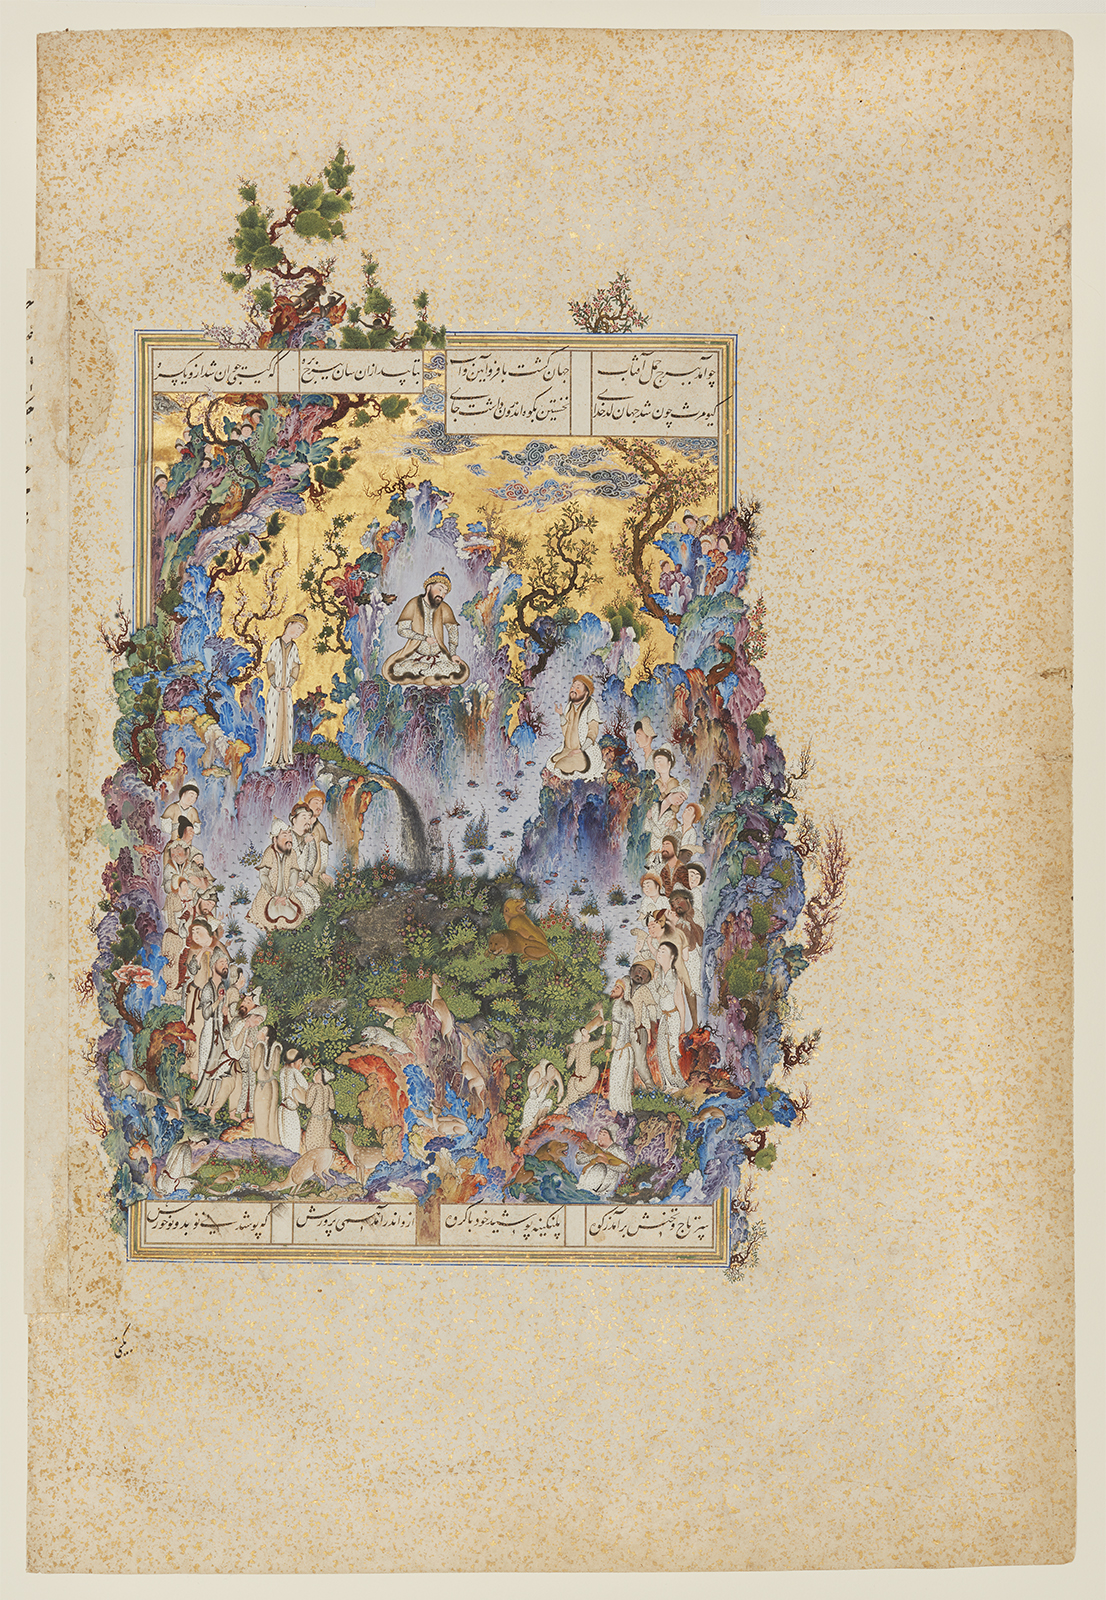 چو آمد ببرج حمل آفتاب جهان گشت با فر و آیین و آب
بتابید ازان سان ز برج بره که گیتی جوان شد ازو یکسره
کیومرث چون شد جهان کدخدای نخستین بکوه اندرون ساخت جای
سر تاج و تختش برآمد ز کوه پلنگینه پوشید خود با گروه
ازو اندر آمد همی پرورش که پوشیدنی نو بد و نو خورش
بگیتی